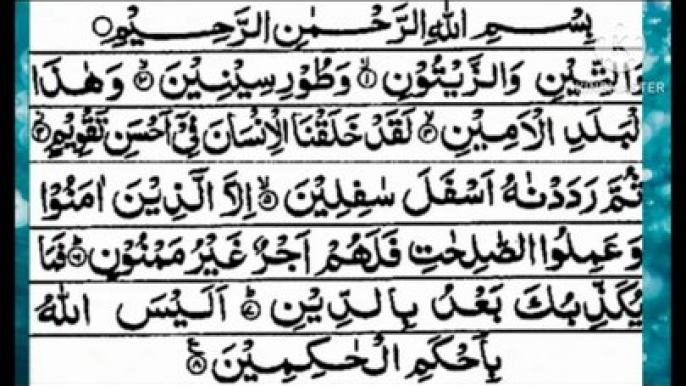 بِسْمِ اللهِ الرَّحْمٰنِ الرَّحِيْمِ
وَالتِّيْنِ وَالزَّيْتُوْنِ ۙ۱ وَطُوْرِ سِيْنِيْنَ ۙ۲ وَهٰذَا
لْبَلَدِ الْاَمِيْنِ ۙ۳ لَقَدْ خَلَقْنَا الْاِنْسَانَ فِيْۤ اَحْسَنِ تَقْوِيْمٍ ۴
ثُمَّ رَدَدْنٰهُ اَسْفَلَ سٰفِلِيْنَ ۙ۵ اِلَّا الَّذِيْنَ اٰمَنُوْا
وَعَمِلُوا الصّٰلِحٰتِ فَلَهُمْ اَجْرٌ غَيْرُ مَمْنُوْنٍ ؕ۶ فَمَا
يُكَذِّبُكَ بَعْدُ بِالدِّيْنِ ؕ۷ اَلَيْسَ اللهُ
بِاَحْكَمِ الْحٰكِمِيْنَ ۸